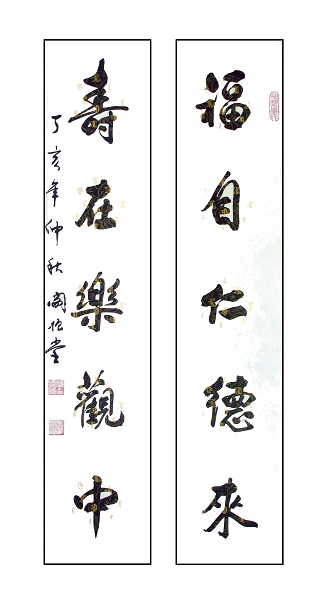 福自仁德來
壽在樂觀中
丁亥年仲秋